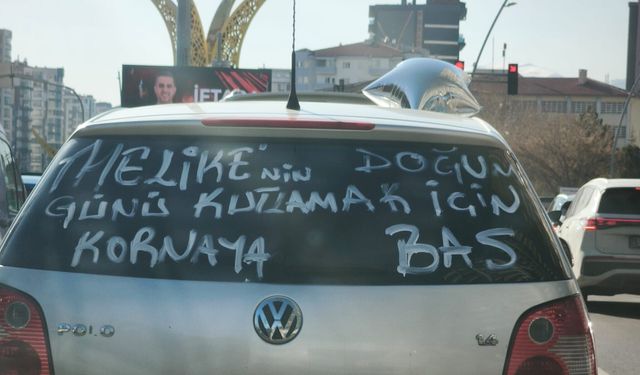 İFTA
MELİKE'NİN DOĞUM
GÜNÜ KUTLAMAK İÇİN
KORNAYA BAS
POLO
1.6